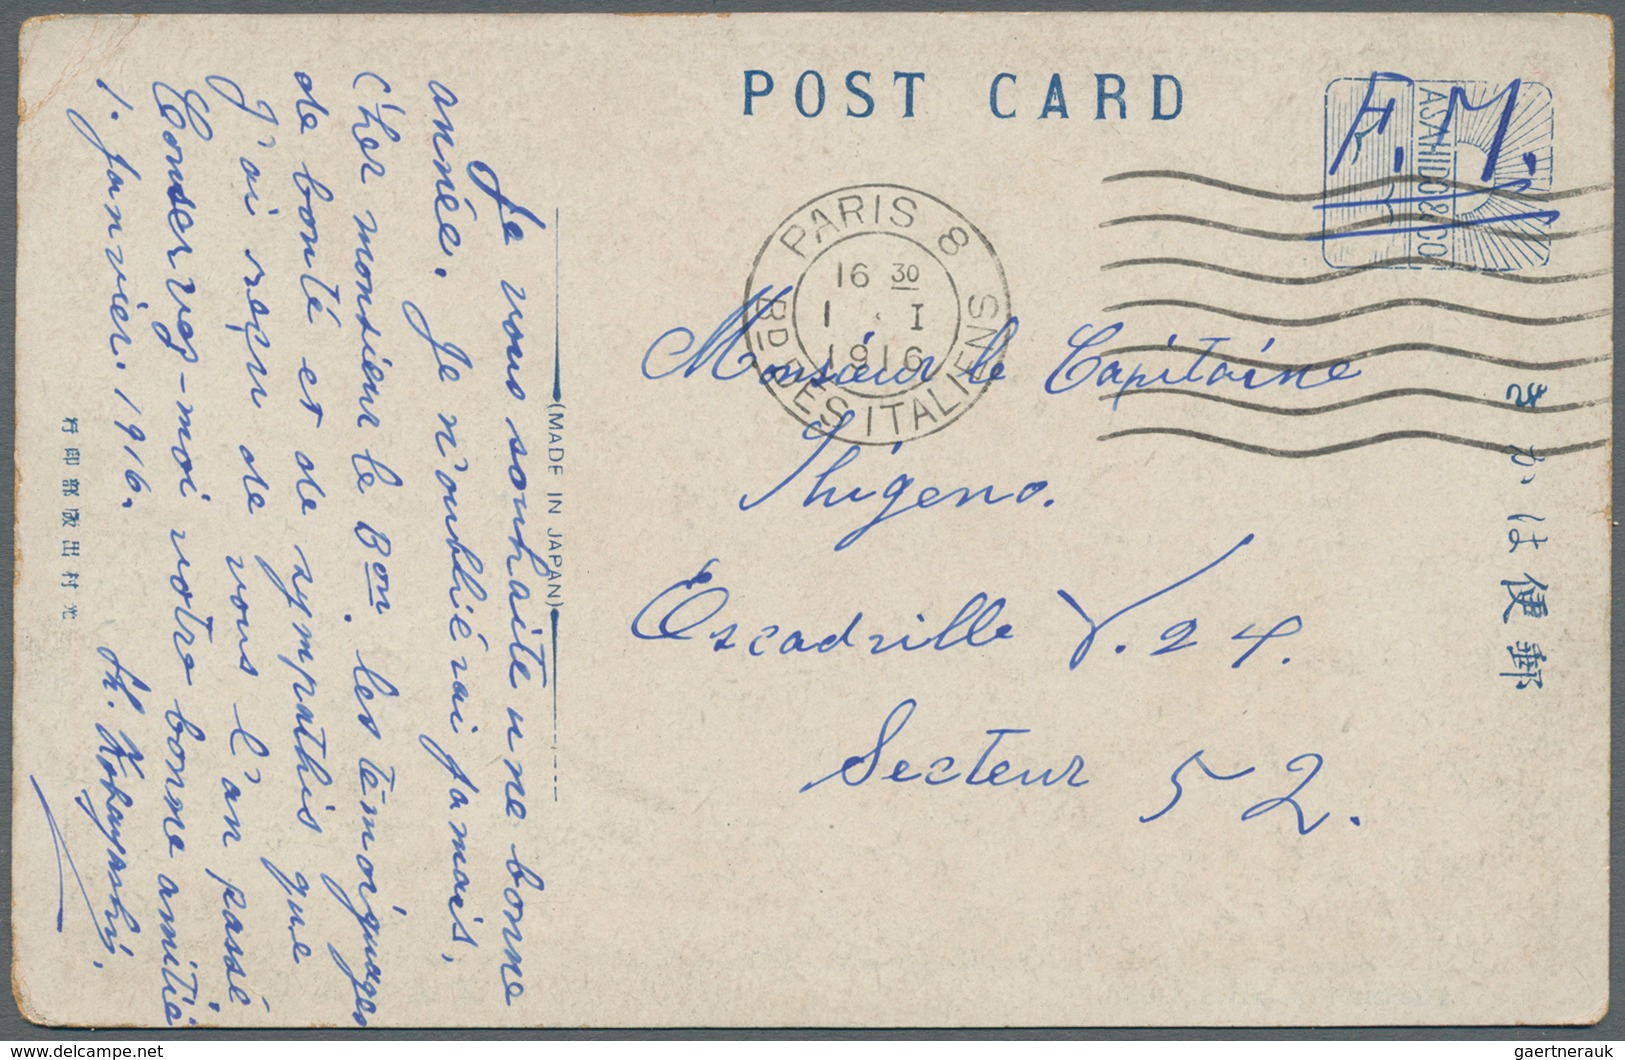 POST CARD
F.M.
ASAHIDO & CO
PARIS 8
16 30
1 . I
1916
BD DES ITALIENS
Monsieur le Capitaine
Shigeno.
Escadrille V. 24.
Secteur 52.
きかは便郵
(MADE IN JAPAN)
Je vous souhaite une bonne
année. Je n'oublierai jamais,
cher monsieur le Bon, les témoignages
de bonté et de sympathie que
J'ai reçu de vous l'an passé
Conservez-moi votre bonne amitié
1. Janvier. 1916. Sh. Kobayashi.
行印部版出村光
gaertnerauk